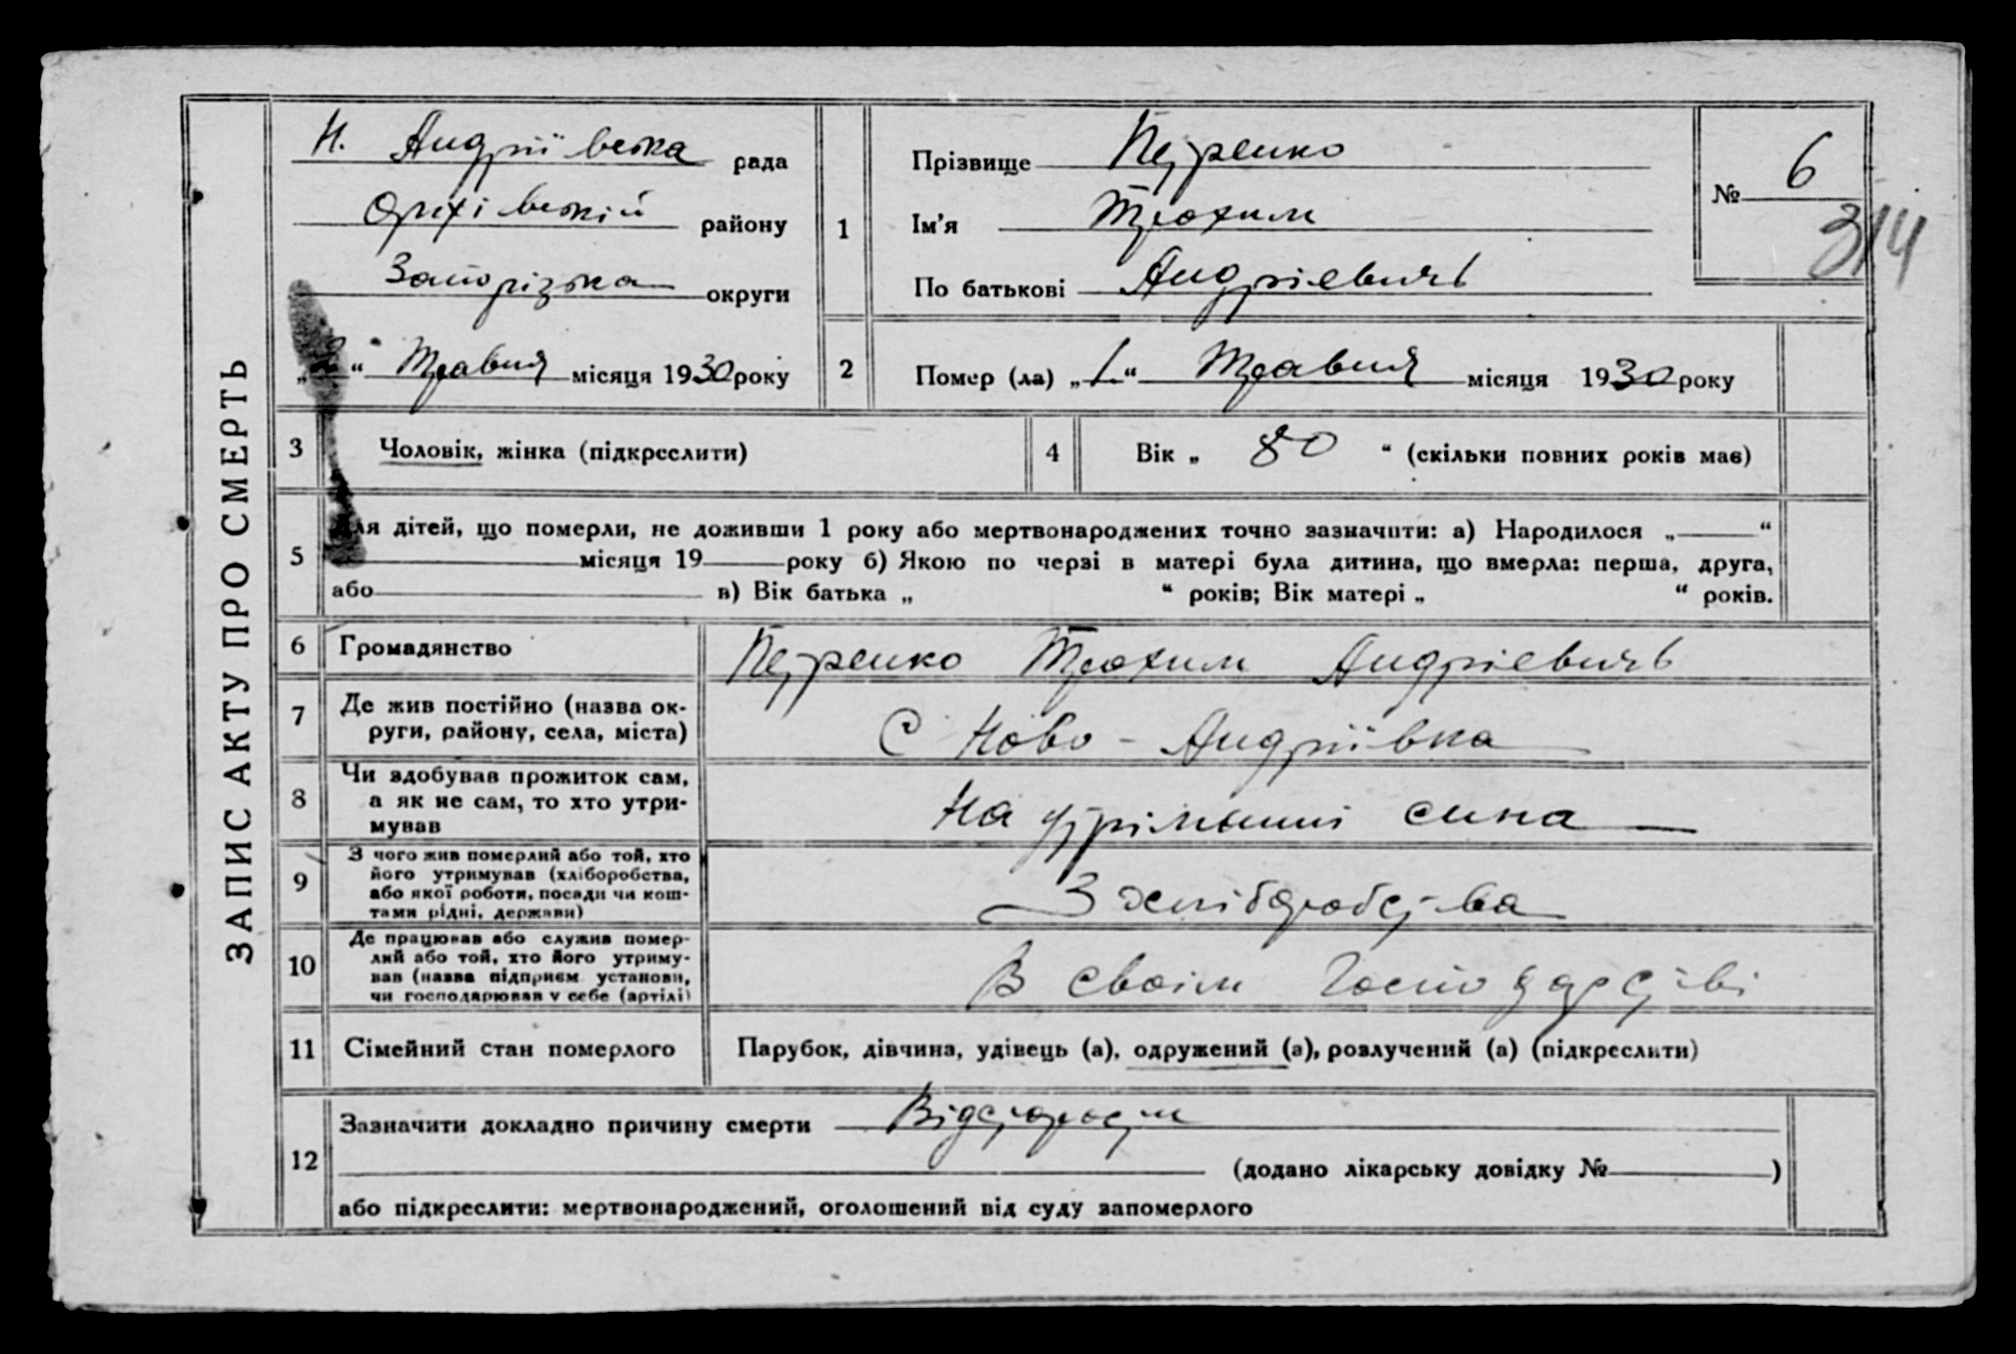 ЗАПИС АКТУ ПРО СМЕРТЬ
Н. Андріївська рада
Оріхівській району
Запорізька округи
„2“ Травня місяця 1930 року
1
Прізвище Петренко
Ім'я Трохим
По батькові Андрієвичь
№ 6
314
2 Помер (ла) „1“ Травня місяця 1930 року
3 Чоловік, жінка (підкреслити)
4 Вік „ 80 “ (скільки повних років має)
5 Для дітей, що померли, не доживши 1 року або мертвонароджених точно зазначити: а) Народилося „ “
місяця 19 року б) Якою по черзі в матері була дитина, що вмерла: перша, друга,
або в) Вік батька „ “ років; Вік матері „ “ років.
6 Громадянство Петренко Трохим Андрієвичь
7 Де жив постійно (назва ок-
руги, району, села, міста)
С Ново-Андріївка
8 Чи здобував прожиток сам,
а як не сам, то хто утри-
мував
На утріманні сина
9 З чого жив померлий або той, хто
його утримував (хліборобства,
або якої роботи, посади чи кош-
тами рідні, держави)
З хліборобства
10 Де працював або служив помер-
лий або той, хто його утриму-
вав (назва підприєм. установи,
чи господарював у себе (артілі)
В своїм Господарстві
11 Сімейний стан померлого Парубок, дівчина, удівець (а), одружений (а), розлучений (а) (підкреслити)
12 Зазначити докладно причину смерти Відстарости
(додано лікарську довідку № )
або підкреслити: мертвонароджений, оголошений від суду запомерлого